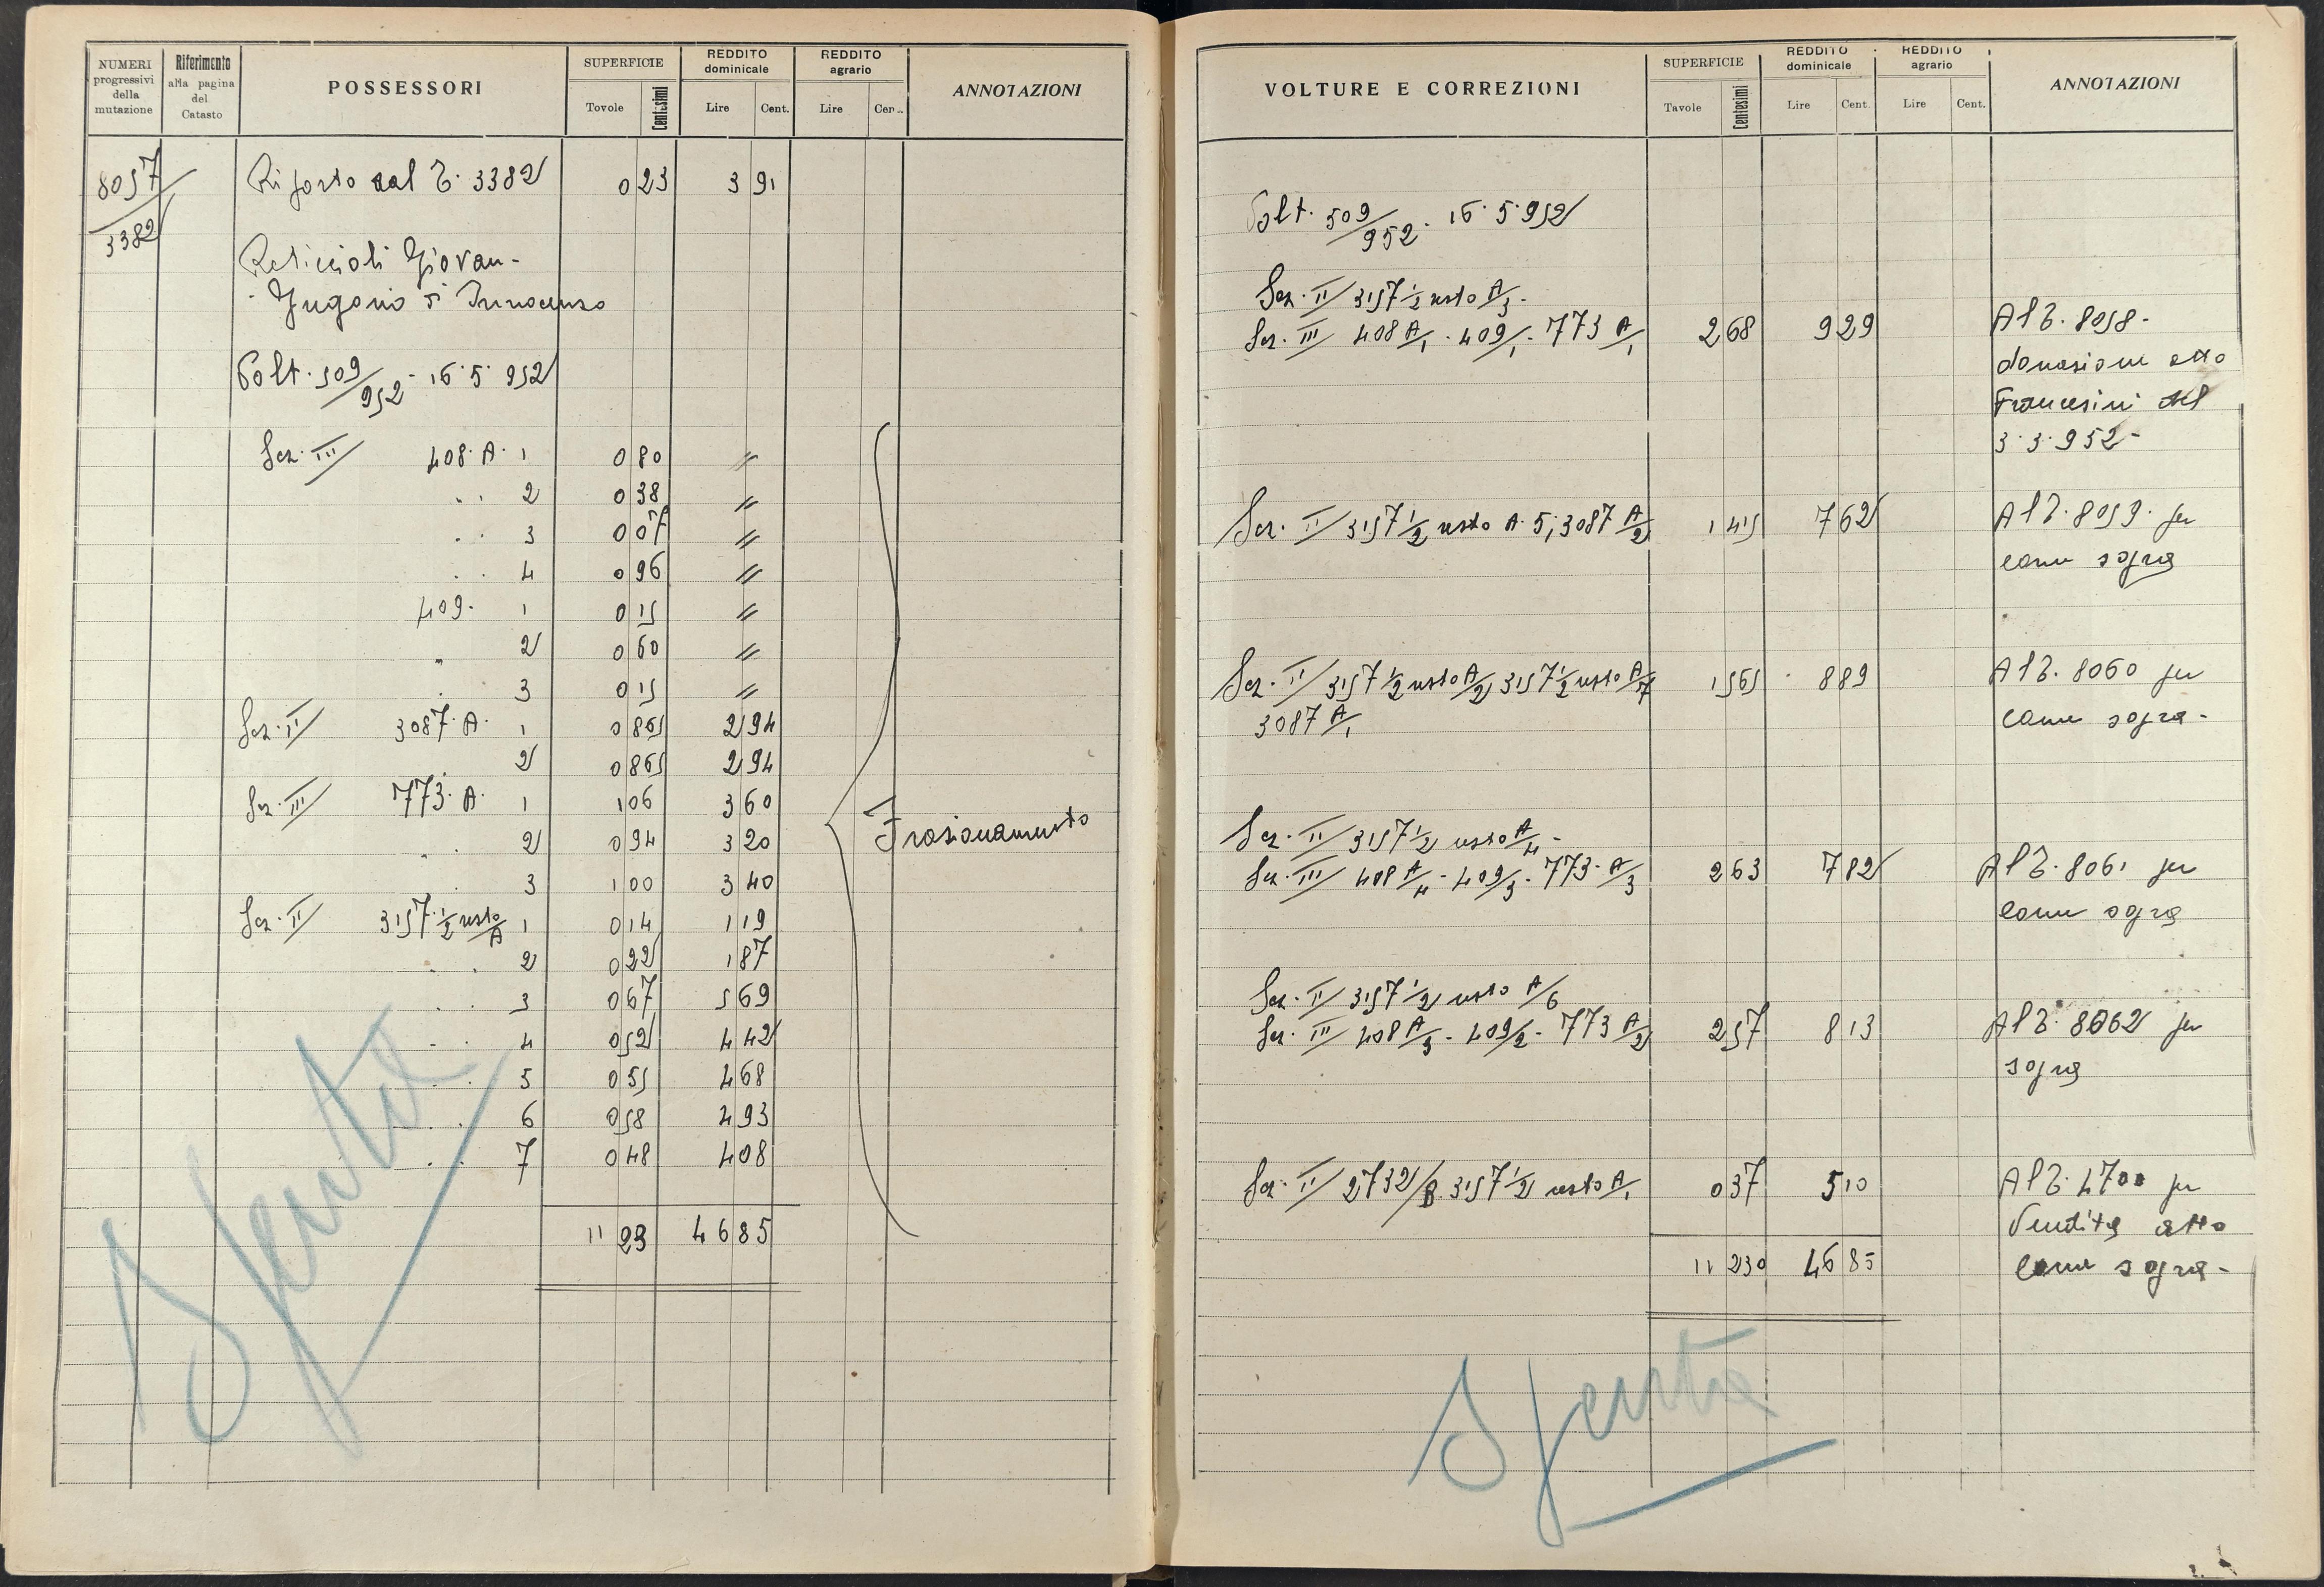 NUMERI progressivi della mutazione
Riferimento alla pagina del Catasto
POSSESSORI
SUPERFICIE
Tovole Centesimi
REDDITO dominicale
Lire Cent.
REDDITO agrario
Lire Cen..
ANNOTAZIONI
8057/3382
Riporto dal T. 3382 0 23 3 91
Giovan-
Volt. 509/952 - 16.5.952
Sez. III 408. A. 1 0 80 "
. . 2 0 38 "
. . 3 0 07 "
. . 4 0 96 "
409. 1 0 15 "
" 2 0 60 "
. 3 0 15 "
Sez. II 3087. A. 1 0 865 2 94
2 0 865 2 94
Sez. III 773. A. 1 1 06 3 60
. . 2 0 94 3 20
. 3 1 00 3 40
Sez. II 3157. 1/2 resto/A 1 0 14 1 19
. . 2 0 22 1 87
. . 3 0 67 5 69
. . 4 0 52 4 42
. . 5 0 55 4 68
. . 6 0 58 4 93
. . 7 0 48 4 08
Frazionamento
11 23 46 85
Spenta
VOLTURE E CORREZIONI
SUPERFICIE
Tavole Centesimi
REDDITO dominicale
Lire Cent.
REDDITO agrario
Lire Cent.
ANNOTAZIONI
Volt. 509/952. 16.5.952
Sez. II 3157 1/2 resto A/3 -
Sez. III 408 A/1 . 409/1 . 773 A/1 2 68 9 29 Al T. 8058 -
donazione atto
Francesini del
3.3.952 -
Sez. II 3157 1/2 resto A. 5; 3087 A/2 1 415 7 62 Al T. 8059. per
come sopra
Sez. II 3157 1/2 resto A/2 3157 1/2 resto A/7 1 565 8 89 Al T. 8060 per
3087 A/1 come sopra -
Sez. II 3157 1/2 resto A/4 -
Sez. III 408 A/4 - 409/3 - 773. A/3 2 63 7 82 Al T. 8061 per
come sopra
Sez. II 3157 1/2 resto A/6
Sez. III 408 A/3 - 409/2 - 773 A/2 2 57 8 13 Al T. 8062 per
sopra
Sez. II 2732/B 3157 1/2 resto A/1 0 37 5 10 Al T. 4700 per
Vendita atto
11 230 46 85 come sopra -
Spenta